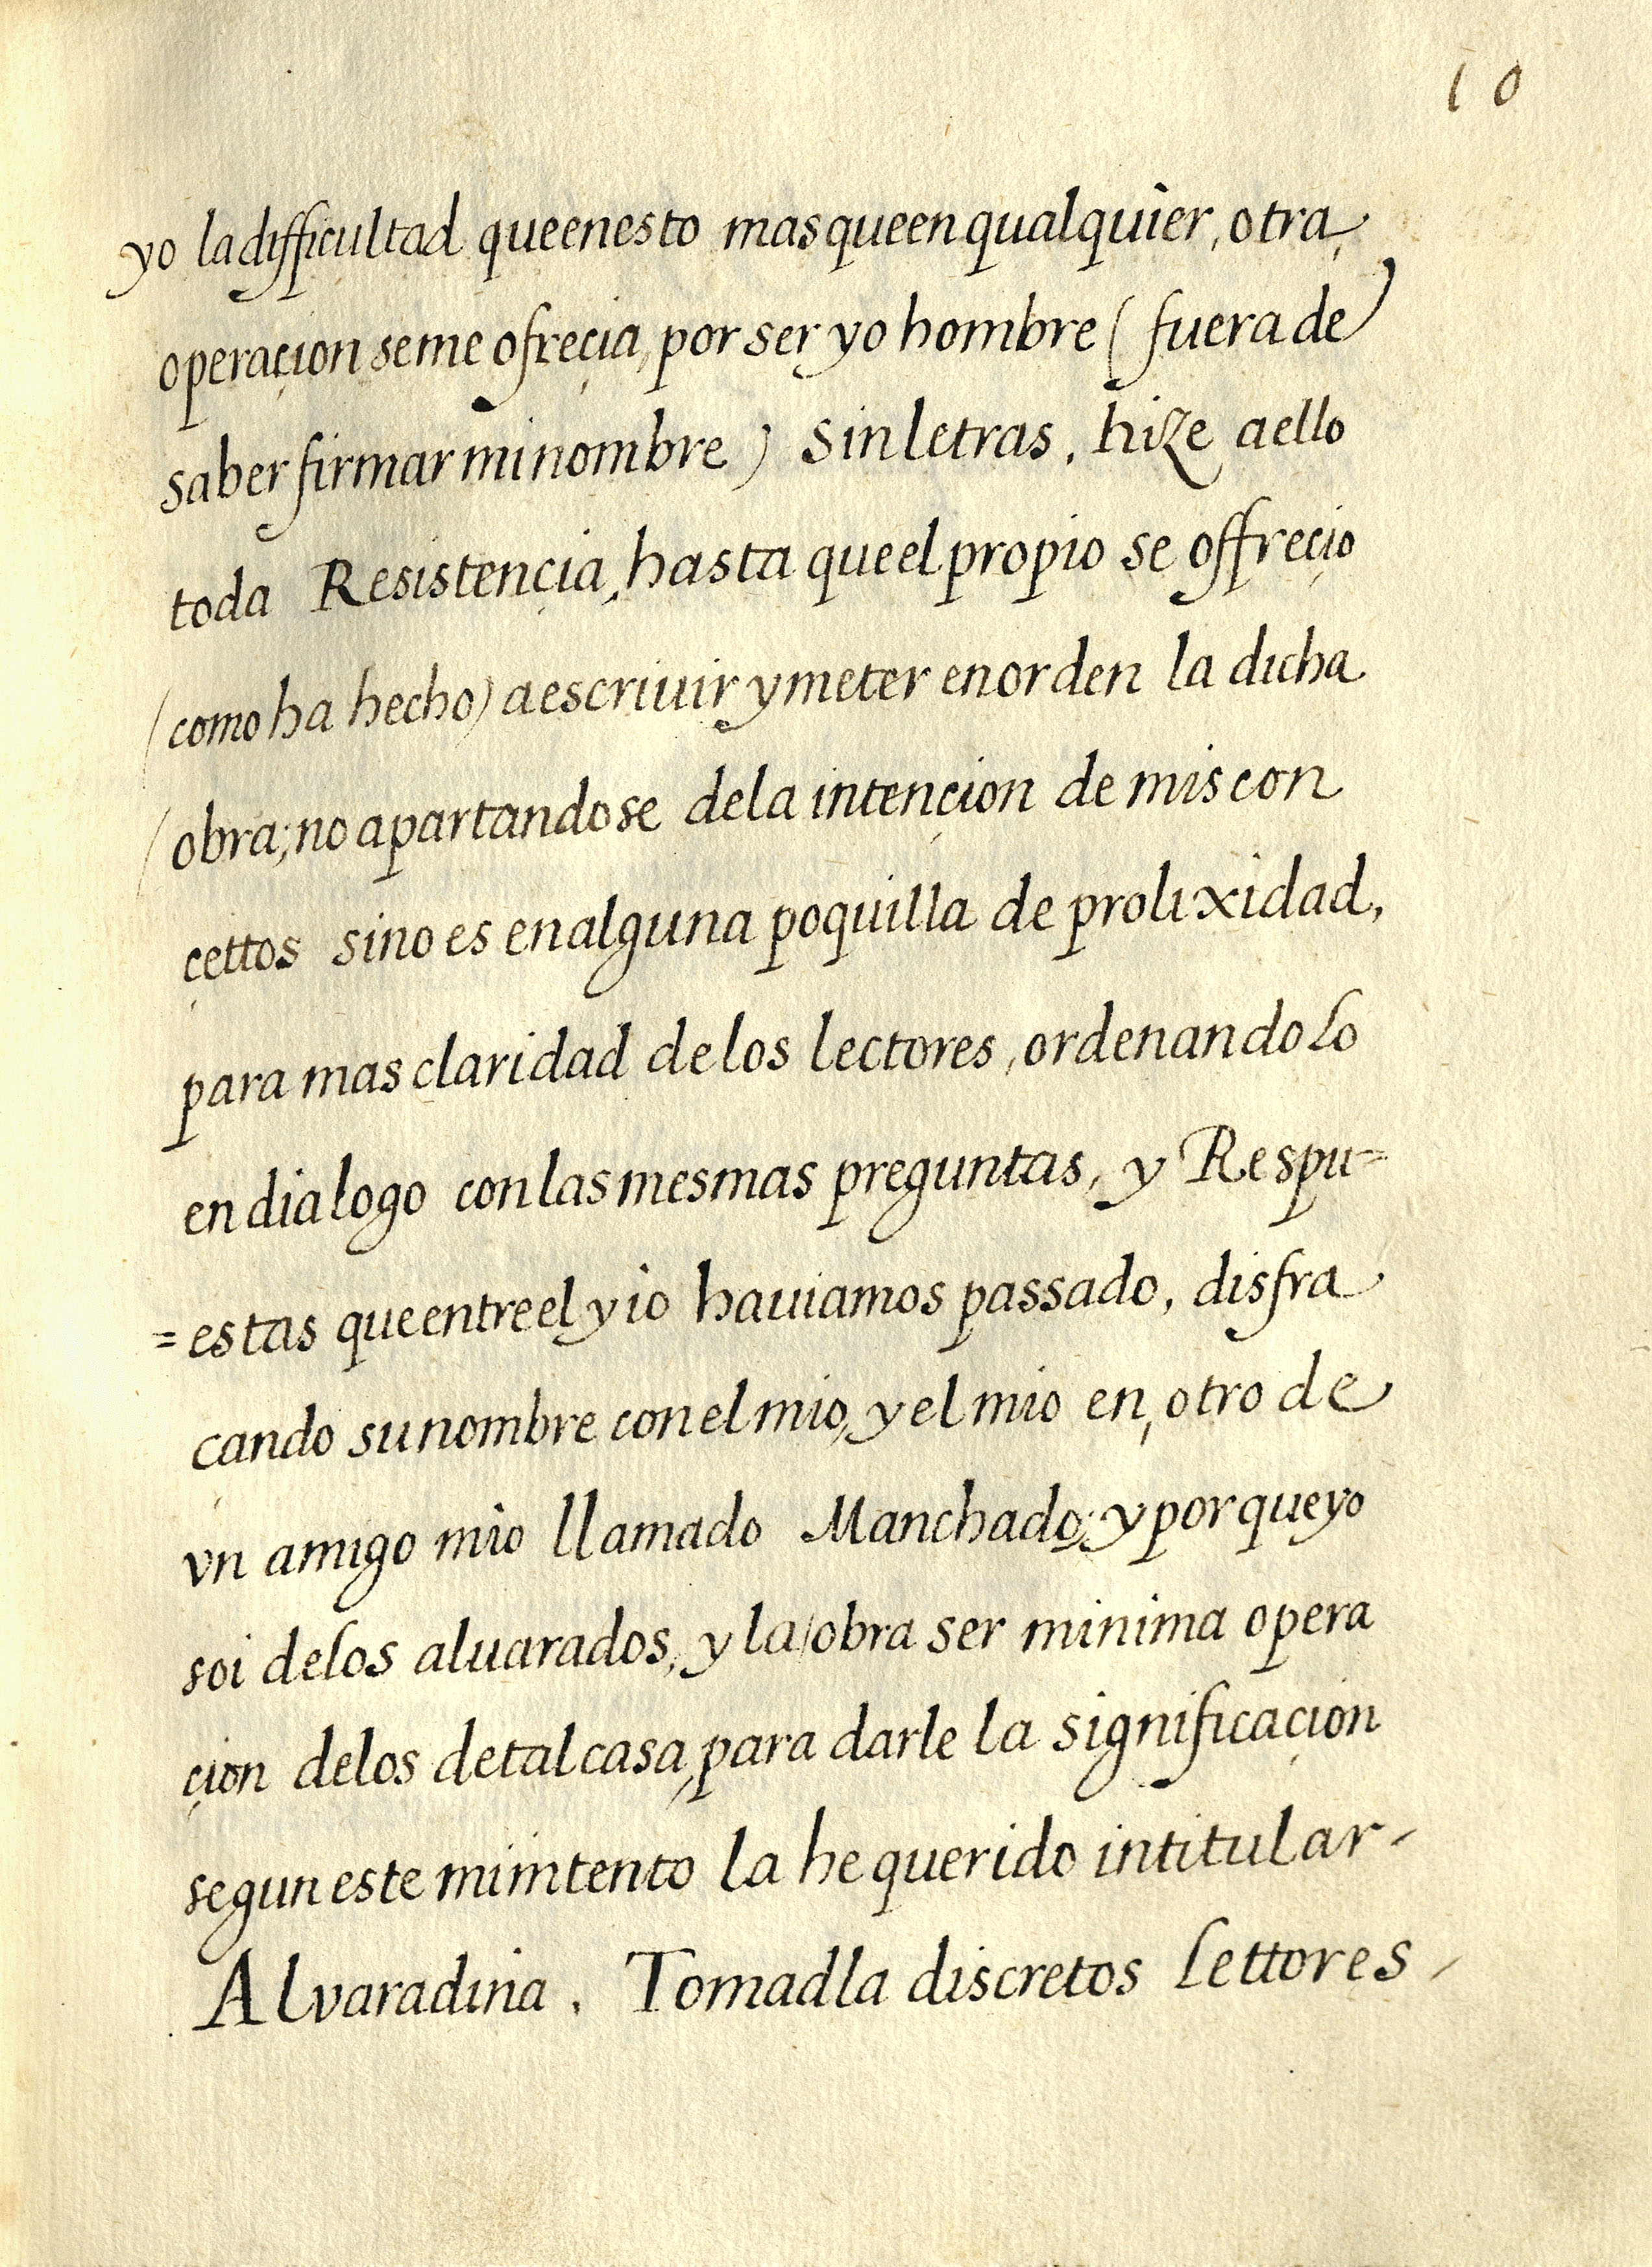 10
yo la difficultad que en esto mas que en qualquier, otra,
operaçion se me ofreçia, por ser yo hombre ( fuera de
saber firmar mi nombre ) sin letras, hize a ello
toda Resistençia, hasta que el propio se offreçio
(como ha hecho) a escriuir y meter en orden la dicha
obra; no apartandose de la intençion de mis con
çettos sino es en alguna poquilla de prolixidad,
para mas claridad de los lectores, ordenandolo
en dialogo con las mesmas preguntas, y Respu=
=estas que entre el y io hauiamos passado, disfra
çando su nombre con el mio, y el mio en, otro de
vn amigo mio llamado Manchado; y porque yo
soi de los aluarados, y la obra ser minima opera
çion de los de tal casa, para darle la significaçion
segun este mi intento la he querido intitular-
Alvaradina. Tomadla discretos lettores,